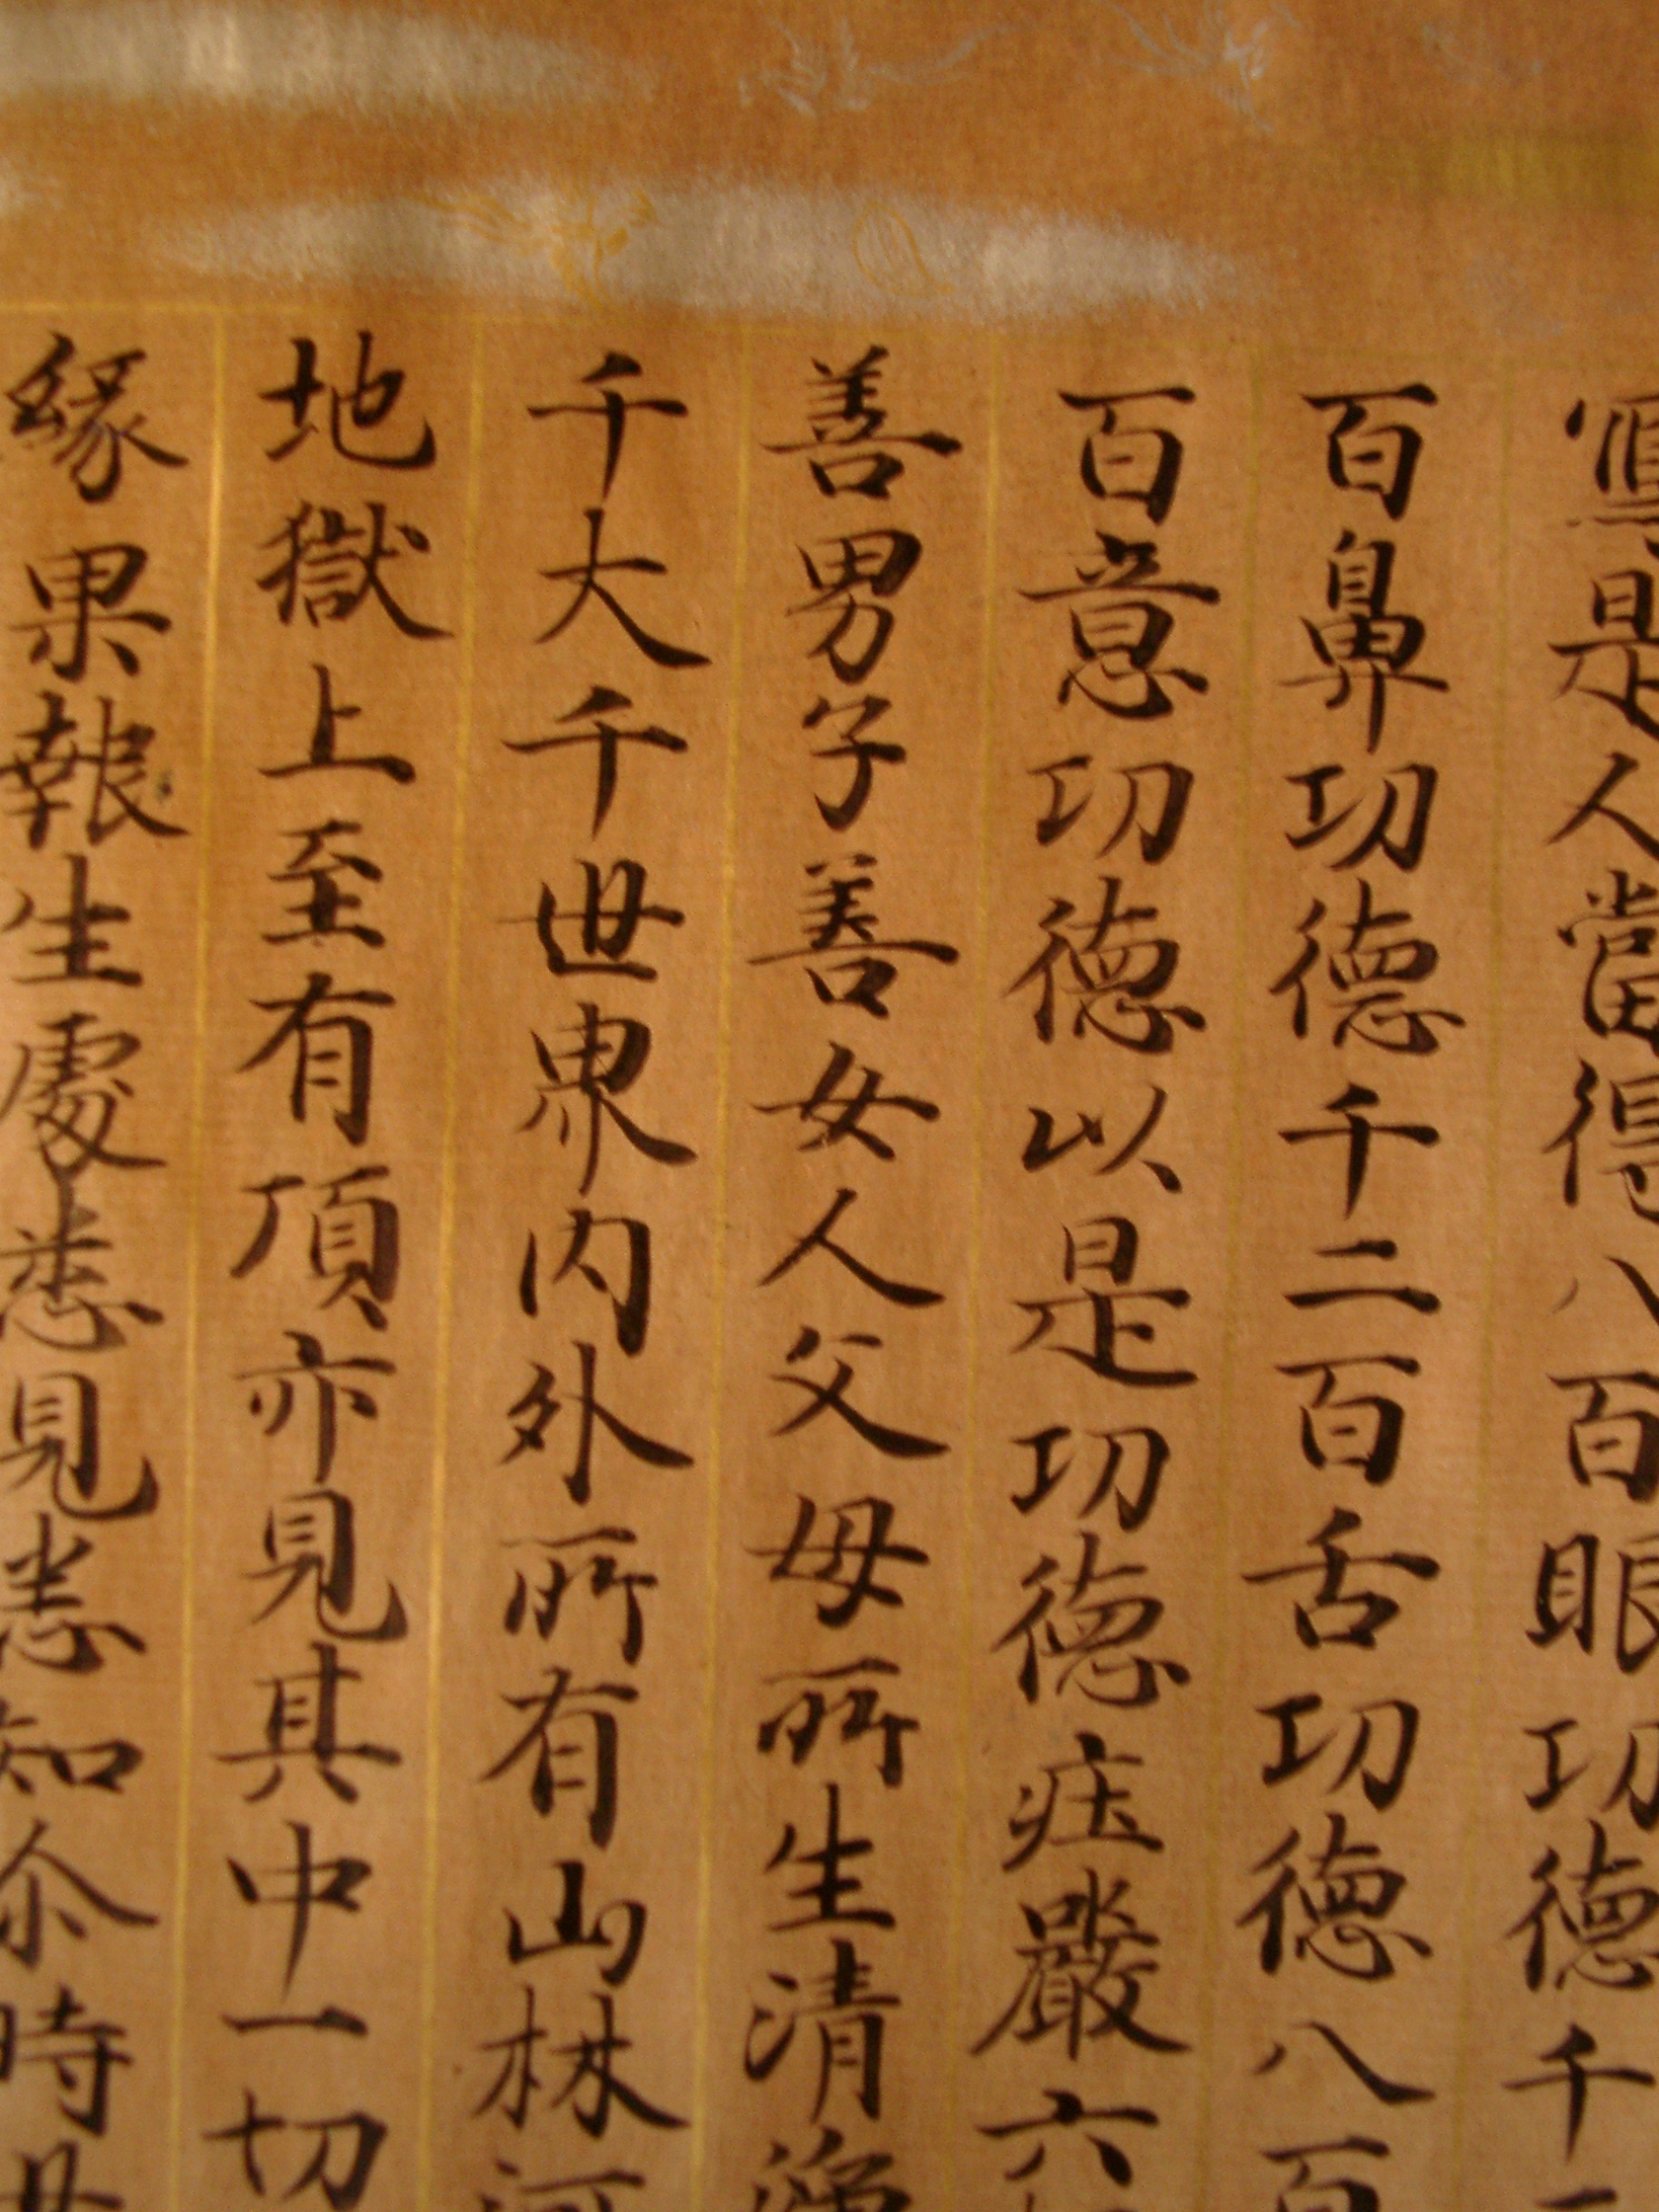 寫是人當得八百眼功德千二
百鼻功德千二百舌功德八百
百意功德以是功德疰嚴六
善男子善女人父母所生清淨
千大千世界内外所有山林河
地獄上至有頂亦見其中一切
緣果報生處悉見悉知尒時世